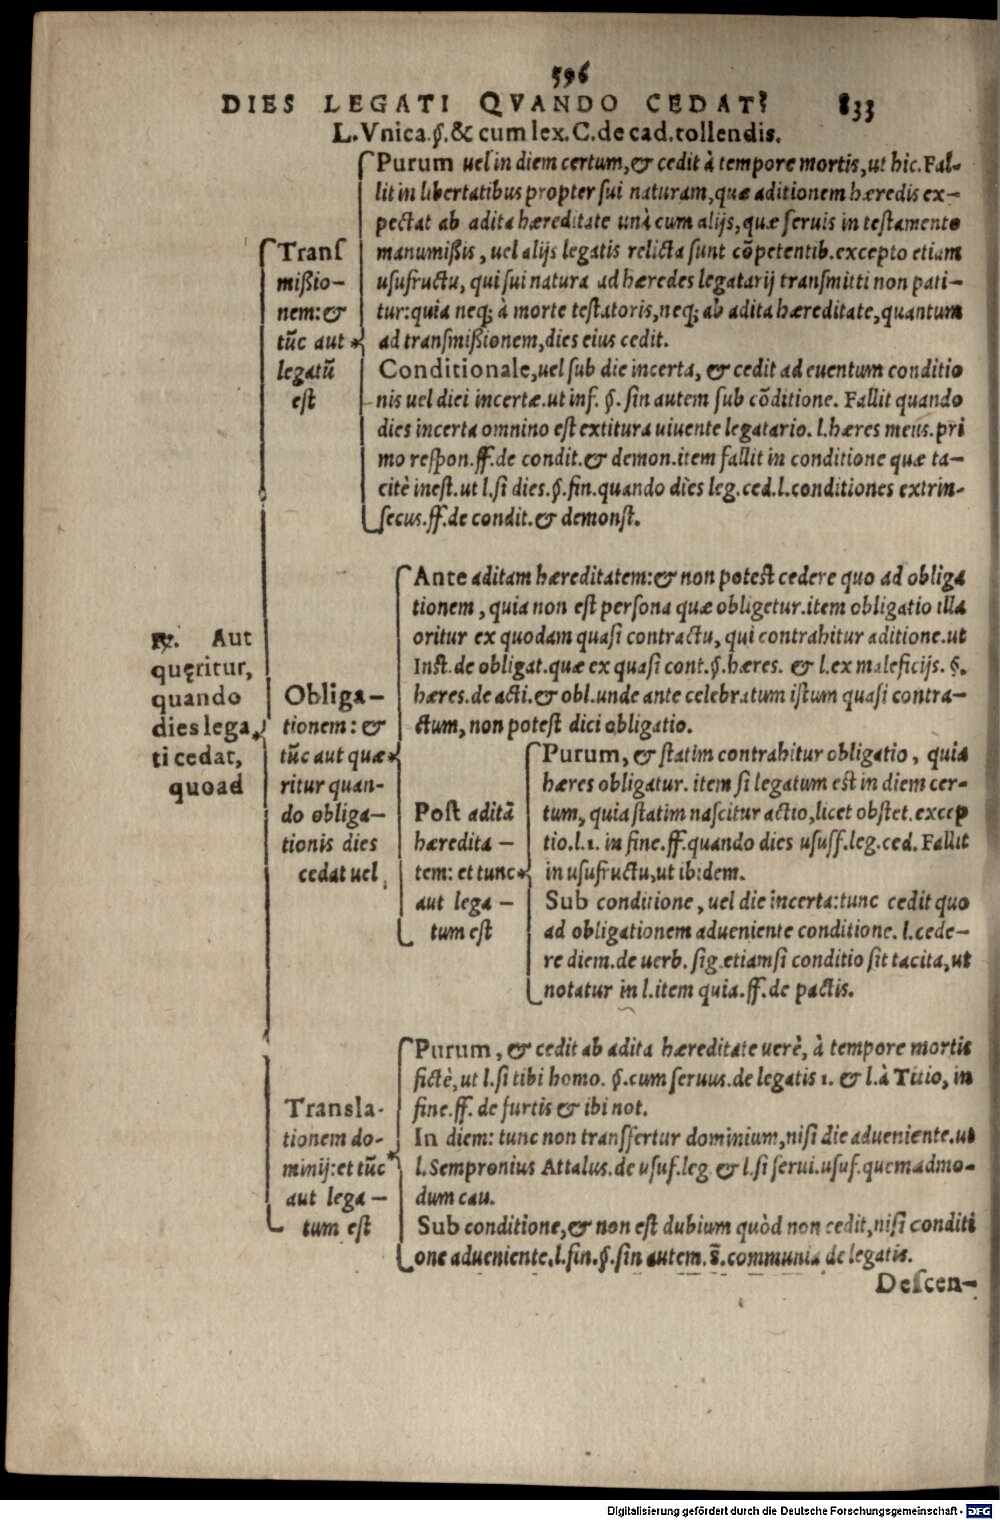 596
DIES LEGATI QVANDO CEDAT? 833
L. Vnica. §. & cum lex. C. de cad. tollendis.
℞. Aut
quęritur,
quando
dies lega
ti cedat,
quoad
Tranſ
mißio-
nem: &
tūc aut
legatū
est
Purum uel in diem certum, & cedit à tempore mortis, ut hic. Fal-
lit in libertatibus propter sui naturam, quæ aditionem hæredis ex-
pectat ab adita hæreditate unà cum alijs, quæ seruis in testamento
manumißis, uel alijs legatis relicta sunt cōpetentib. excepto etiam
usufructu, qui sui natura ad hæredes legatarij transmitti non pati-
tur: quia neq; à morte testatoris, neq; ab adita hæreditate, quantum
ad transmißionem, dies eius cedit.
Conditionale, uel sub die incerta, & cedit ad euentum conditio
nis uel diei incertæ. ut inf. §. sin autem sub cōditione. Fallit quando
dies incerta omnino est extitura uiuente legatario. l. hæres meus. pri
mo respon. ff. de condit. & demon. item fallit in conditione quæ ta-
citè inest. ut l. si dies. §. fin. quando dies leg. ced. l. conditiones extrin-
secus. ff. de condit. & demonst.
Obliga-
tionem: &
tūc aut quæ
ritur quan-
do obliga-
tionis dies
cedat uel
Ante aditam hæreditatem: & non potest cedere quo ad obliga
tionem, quia non est persona quæ obligetur. item obligatio illa
oritur ex quodam quasi contractu, qui contrahitur aditione. ut
Inst. de obligat. quæ ex quasi cont. §. hæres. & l. ex maleficijs. §.
hæres. de acti. & obl. unde ante celebratum istum quasi contra-
ctum, non potest dici obligatio.
Post aditā
heredita-
tem: et tunc
aut lega-
tum est
Purum, & statim contrahitur obligatio, quia
hæres obligatur. item si legatum est in diem cer-
tum, quia statim nascitur actio, licet obstet. excep
tio. l. 1. in fine. ff. quando dies ususf. leg. ced. Fallit
in usufructu, ut ibidem.
Sub conditione, uel die incerta: tunc cedit quo
ad obligationem adueniente conditione. l. cede-
re diem. de uerb. sig. etiamsi conditio sit tacita, ut
notatur in l. item quia. ff. de pactis.
Transla-
tionem do-
minij: et tūc
aut lega-
tum est
Purum, & cedit ab adita hæreditate uerè, à tempore mortis
fictè, ut l. si tibi homo. §. cum seruus. de legatis 1. & l. à Titio, in
fine. ff. de furtis & ibi not.
In diem: tunc non transfertur dominium, nisi die adueniente. ut
l. Sempronius Attalus. de usuf. leg. & l. si serui. usuf. quemadmo-
dum cau.
Sub conditione, & non est dubium quòd non cedit, nisi conditi
one adueniente. l. fin. §. sin autem. s̄. communia de legatis.
Descen-
Digitalisierung gefördert durch die Deutsche Forschungsgemeinschaft - DFG